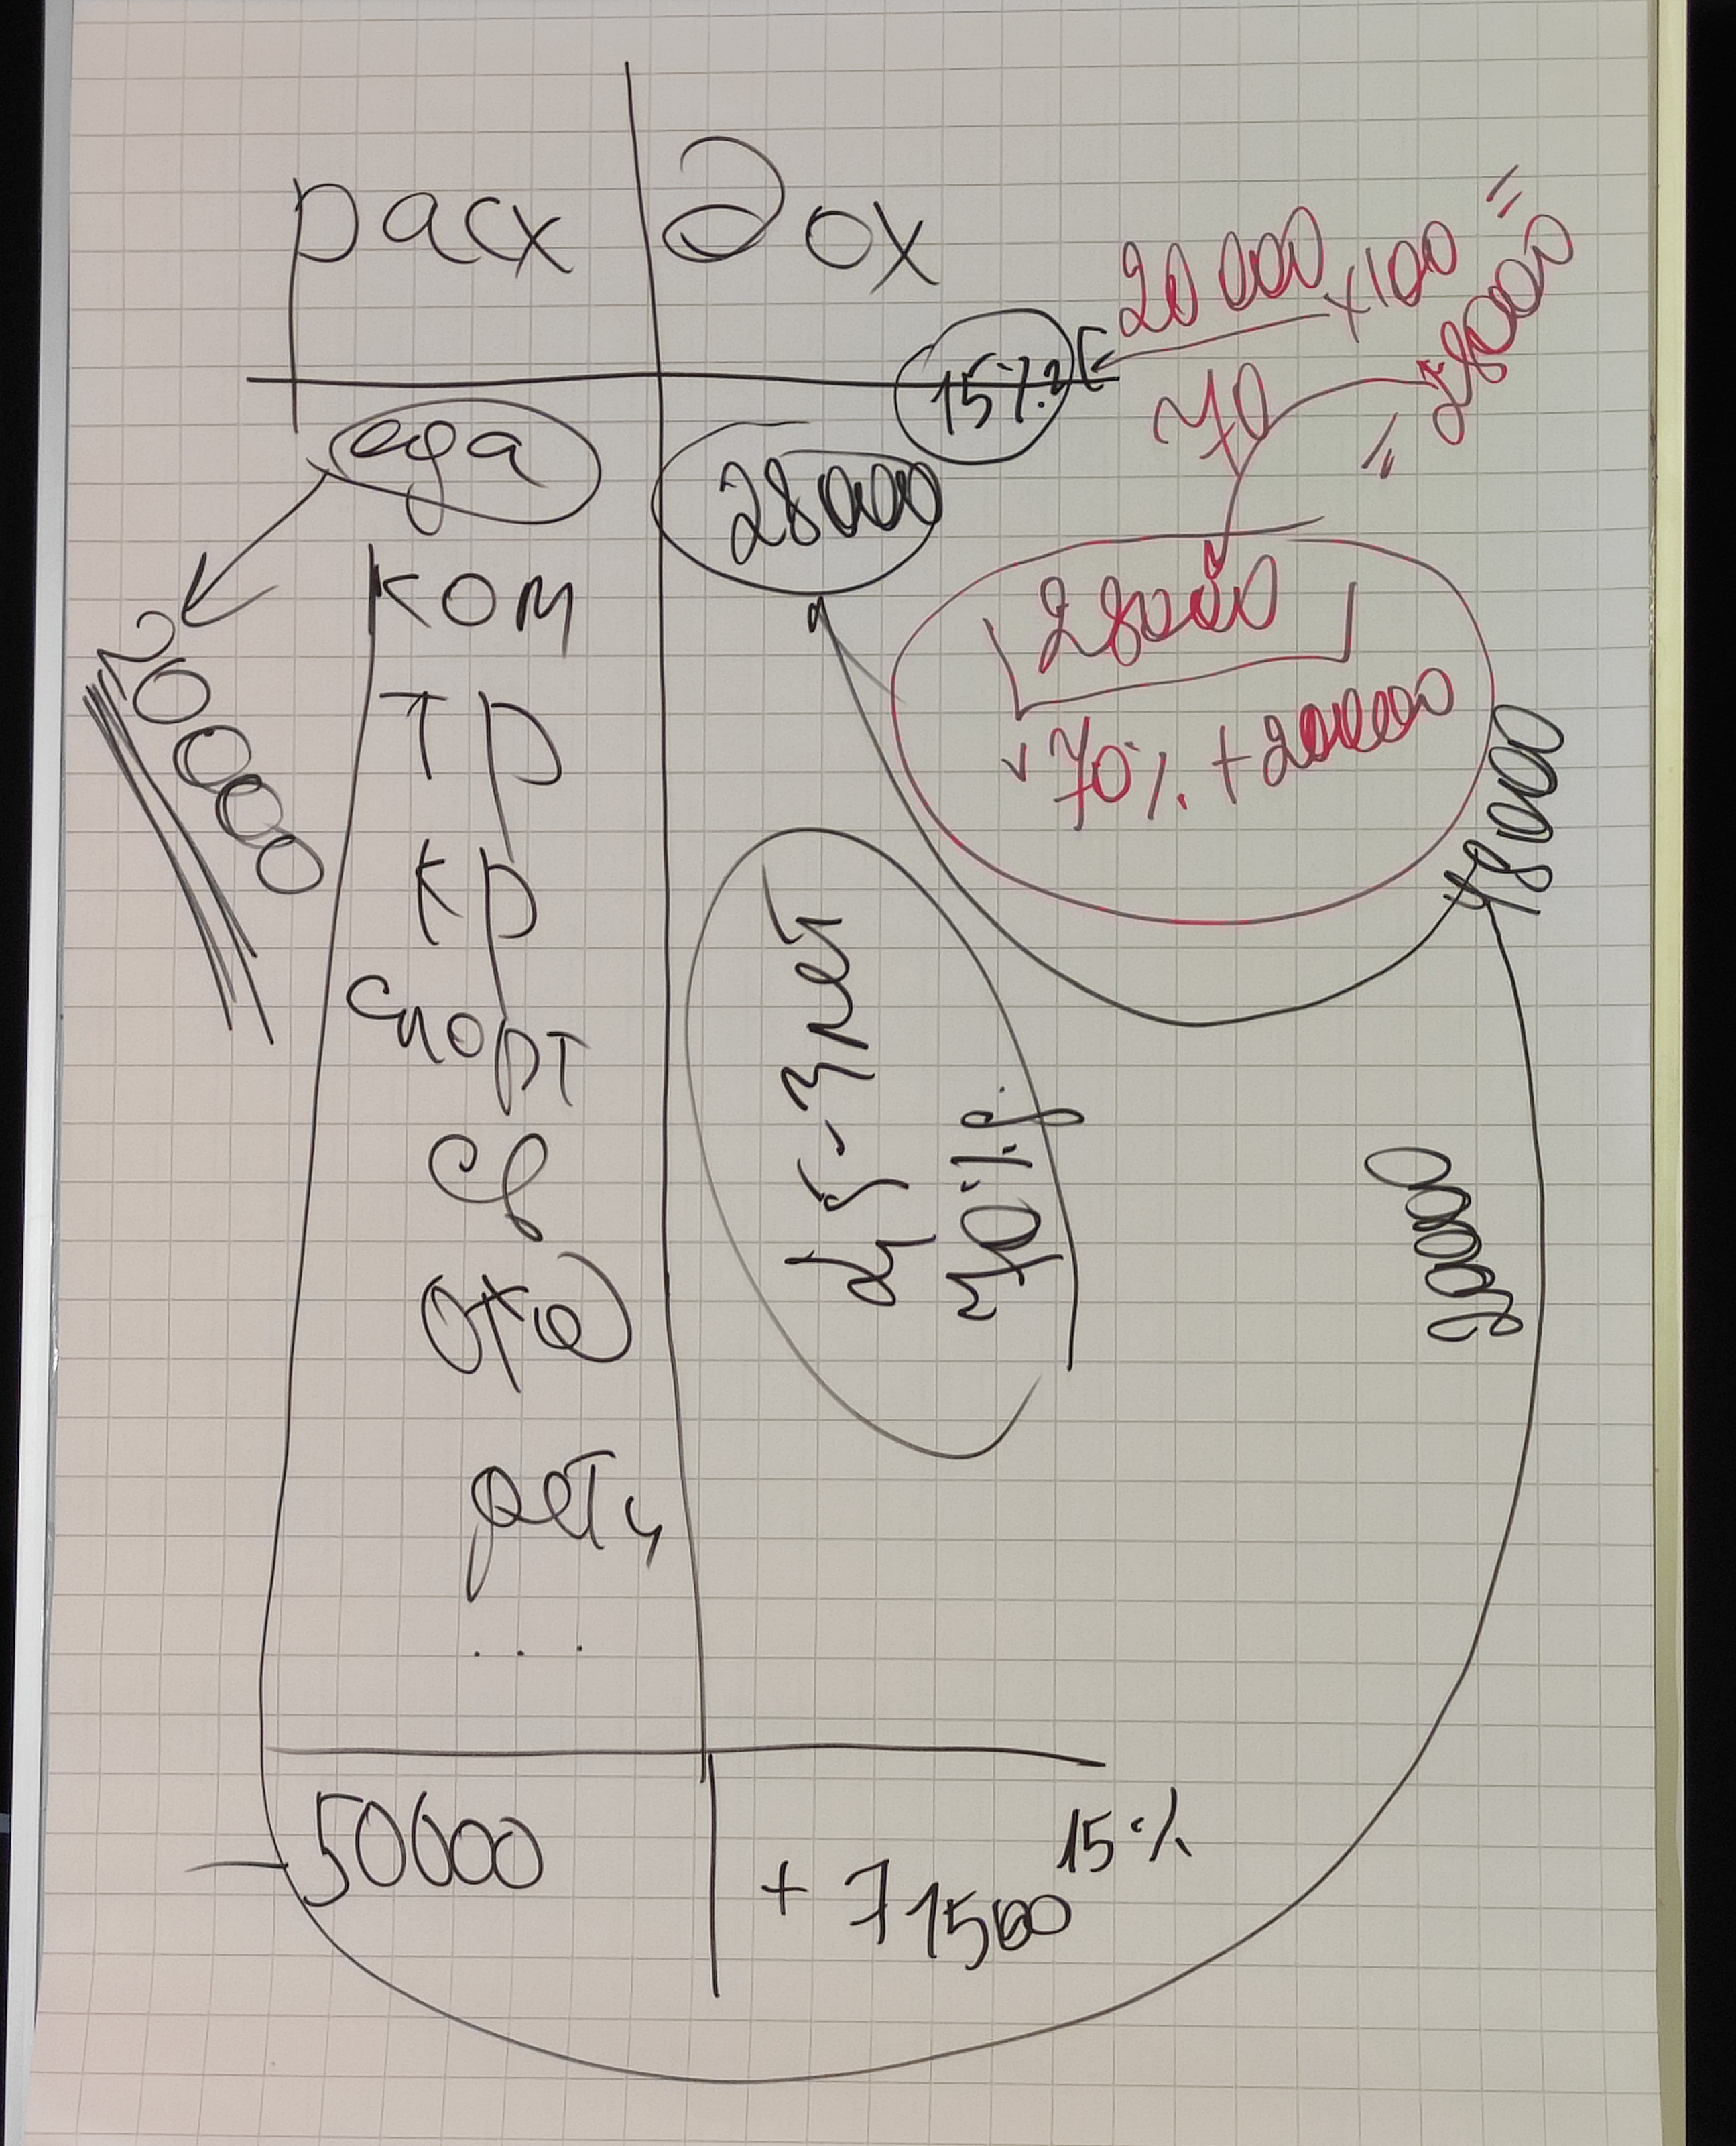 расх дох
20 000 x 100 =
70
= 28000
15%
еда
28000
ком
20000
28000
70% + 200000
тр
48000
кр
2,5-3 лет
70%
спорт
св
отд
20000
дети
...
- 50000
+ 71500 15%